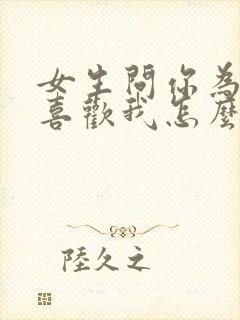 女生問你為
喜歡我怎麼
陸久之